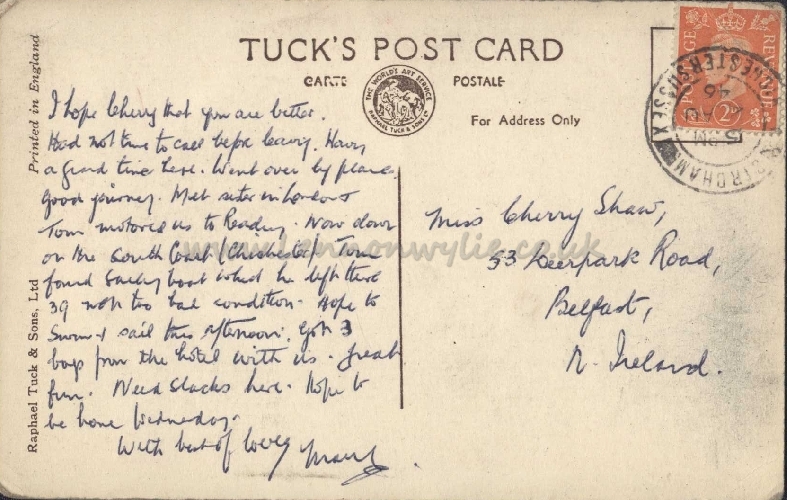 TUCK'S POST CARD
CARTE POSTALE
THE WORLD'S ART SERVICE
RAPHAEL TUCK & SONS, LD
For Address Only
Printed in England
Raphael Tuck & Sons, Ltd
I hope Cherry that you are better.
Had not time to call before leaving. Having
a grand time here. Went over by plane.
Good journey. Met sister in London &
Tom motored us to Reading. Now down
on the South Coast (Chichester) Tom
found sailing boat which he left there
39 not too bad condition. Hope to
swim & sail this afternoon. Got 3
boys from the hotel with us. Great
fun. Need slacks here. Hope to
be home Wednesday.
With best of love
Miss Cherry Shaw,
53 Deerpark Road,
Belfast,
N. Ireland.
POSTAGE REVENUE
2D
CHICHESTER SUSSEX
5 PM
AU
46
www.lennonwylie.co.uk